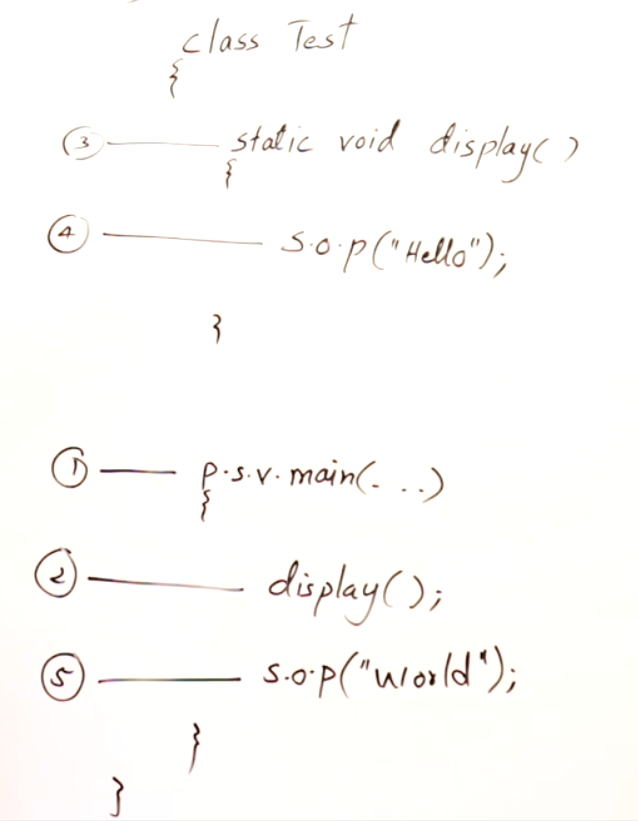 class Test
{
3 static void display()
{
4 S.O.P("Hello");
}
1 P.S.V. main(...)
{
2 display();
5 S.O.P("World");
}
}